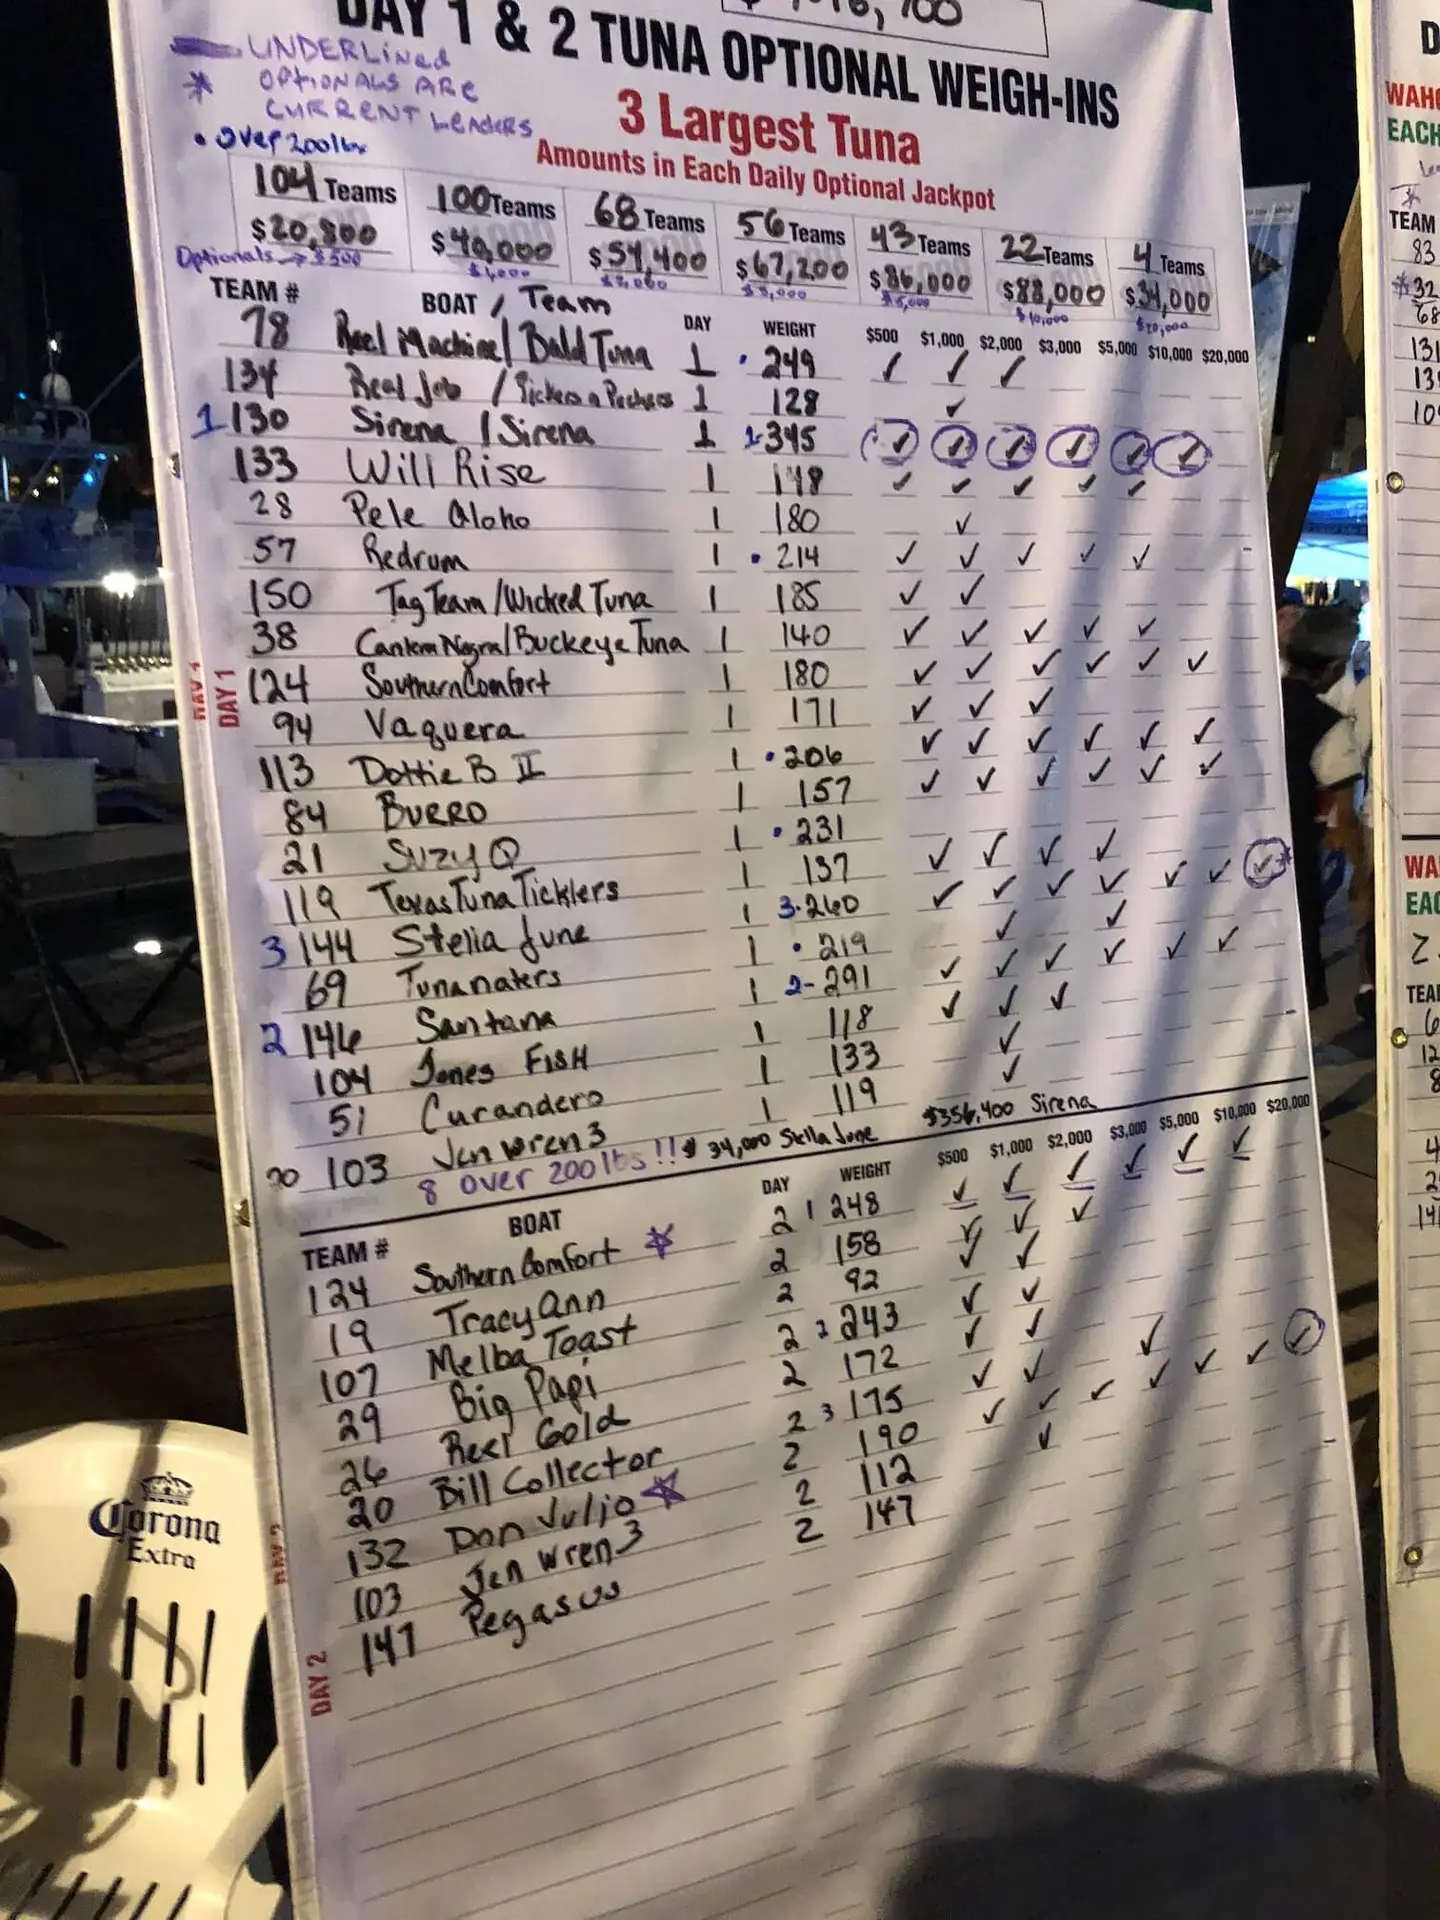 DAY 1 & 2 TUNA OPTIONAL WEIGH-INS
UNDERLINED
* OPTIONALS ARE
CURRENT LEADERS
• Over 200 lbs
3 Largest Tuna
Amounts in Each Daily Optional Jackpot
104 Teams 100 Teams 68 Teams 56 Teams 43 Teams 22 Teams 4 Teams
$20,800 $40,000 $54,400 $67,200 $86,000 $88,000 $34,000
Optionals → $500 $1,000 $2,000 $3,000 $5,000 $10,000 $20,000
TEAM # BOAT / Team DAY WEIGHT $500 $1,000 $2,000 $3,000 $5,000 $10,000 $20,000
78 Reel Machine / Bald Tuna 1 • 249 ✓ ✓ ✓
134 Real Job / 1 128 ✓
1 130 Sirena / Sirena 1 1-345 ✓ ✓ ✓ ✓ ✓ ✓
133 Will Rise 1 148 ✓ ✓ ✓ ✓ ✓
28 Pele Aloho 1 180 ✓
57 Redrum 1 • 214 ✓ ✓ ✓ ✓ ✓
150 Tag Team / Wicked Tuna 1 185 ✓ ✓
38 / Buckeye Tuna 1 140 ✓ ✓ ✓ ✓ ✓
124 Southern Comfort 1 180 ✓ ✓ ✓ ✓ ✓ ✓
94 Vaquera 1 171 ✓ ✓ ✓
113 Dottie B II 1 • 206 ✓ ✓ ✓ ✓ ✓ ✓
84 BURRO 1 157 ✓ ✓ ✓ ✓ ✓ ✓
21 Suzy Q 1 • 231
119 Texas Tuna Ticklers 1 137 ✓ ✓ ✓ ✓
3 144 Stella June 1 3-260 ✓ ✓ ✓ ✓ ✓ ✓ ✓*
69 Tunanaters 1 • 219 ✓ ✓
2 146 Santana 1 2-291 ✓ ✓ ✓ ✓ ✓ ✓
104 Jones FISH 1 118 ✓ ✓ ✓
51 Curandero 1 133 ✓
20 103 Jen Wren 3 1 119 ✓
8 over 200 lbs!! $34,000 Stella June $356,400 Sirena
DAY 1
TEAM # BOAT DAY WEIGHT $500 $1,000 $2,000 $3,000 $5,000 $10,000 $20,000
124 Southern Comfort ☆ 2 1 248 ✓ ✓ ✓ ✓ ✓ ✓
19 Tracy Ann 2 158 ✓ ✓ ✓
107 Melba Toast 2 92 ✓ ✓
29 Big Papi 2 2 243 ✓ ✓
26 Reel Gold 2 172 ✓ ✓
20 Bill Collector 2 3 175 ✓ ✓ ✓
132 Don Julio ☆ 2 190 ✓ ✓ ✓ ✓ ✓ ✓ ✓
103 Jen Wren 3 2 112 ✓
147 Pegasus 2 147
DAY 2
Corona
Extra
D
WAHO
EACH
TEAM
83
*32
68
131
WA
EAC
TEA